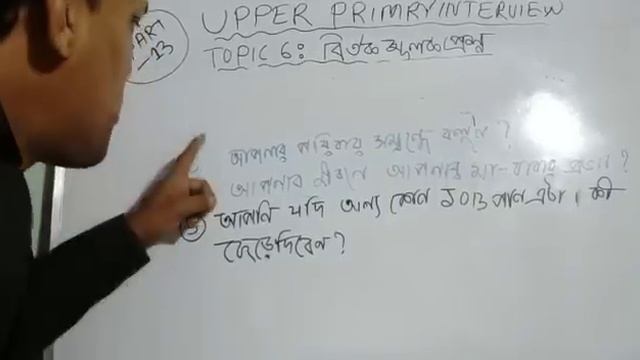 PART
-13
UPPER PRIMRY INTERVIEW
TOPIC 6: বির্তক মূলক প্রশ্ন
আপনার পরিবার সম্বন্ধে বলুন ?
আপনার জীবনে আপনার মা-বাবার প্রভাব ?
3 আপনি যদি অন্য কোন JOB পান এটা কী
ছেড়ে দিবেন ?